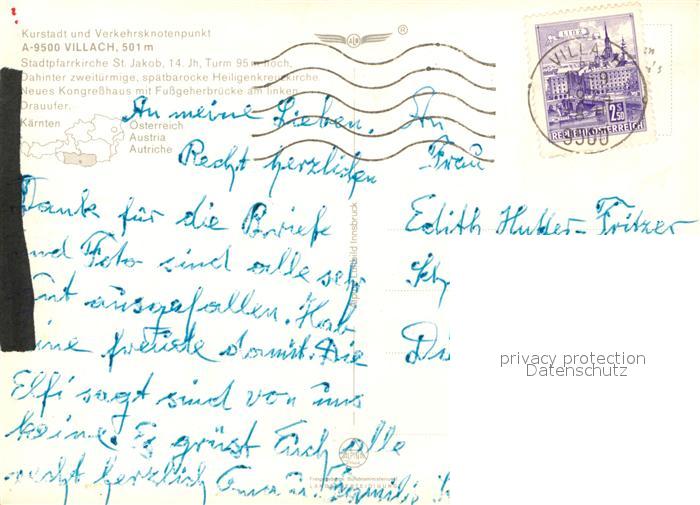 Kurstadt und Verkehrsknotenpunkt
A-9500 VILLACH, 501 m
Stadtpfarrkirche St. Jakob, 14. Jh, Turm 95 m hoch,
Dahinter zweitürmige, spätbarocke Heiligenkreuzkirche
Neues Kongreßhaus mit Fußgeherbrücke am linken
Drauufer.
Kärnten
Österreich
Austria
Autriche
®
LINZ
VILLA
2.50
REPUBLIK ÖSTERREICH
9500
An meine Lieben.
Recht herzlichen
Dank für die Briefe
und Foto sind alle sehr
gut ausgefallen. Hab
eine freude damit. Die
Elfi sagt sind von uns
keine. Es grüst Euch alle
recht herzlich
An
Frau
Edith Hutter-Fritzer
privacy protection
Datenschutz